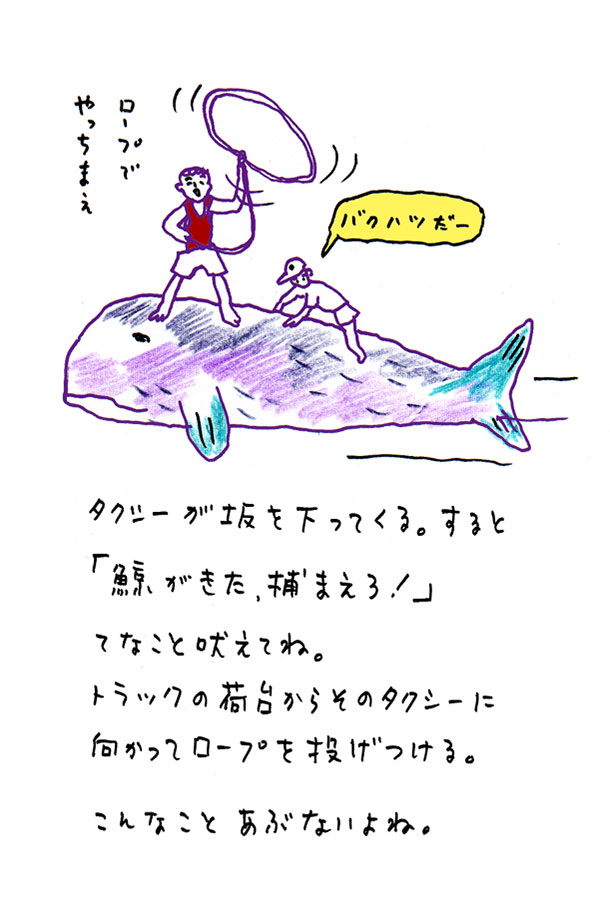 ロープで
やっちまえ
バクハツだー
タクシーが坂を下ってくる。すると
「鯨がきた、捕まえろ!」
てなこと吠えてね。
トラックの荷台からそのタクシーに
向かってロープを投げつける。
こんなこと あぶないよね。